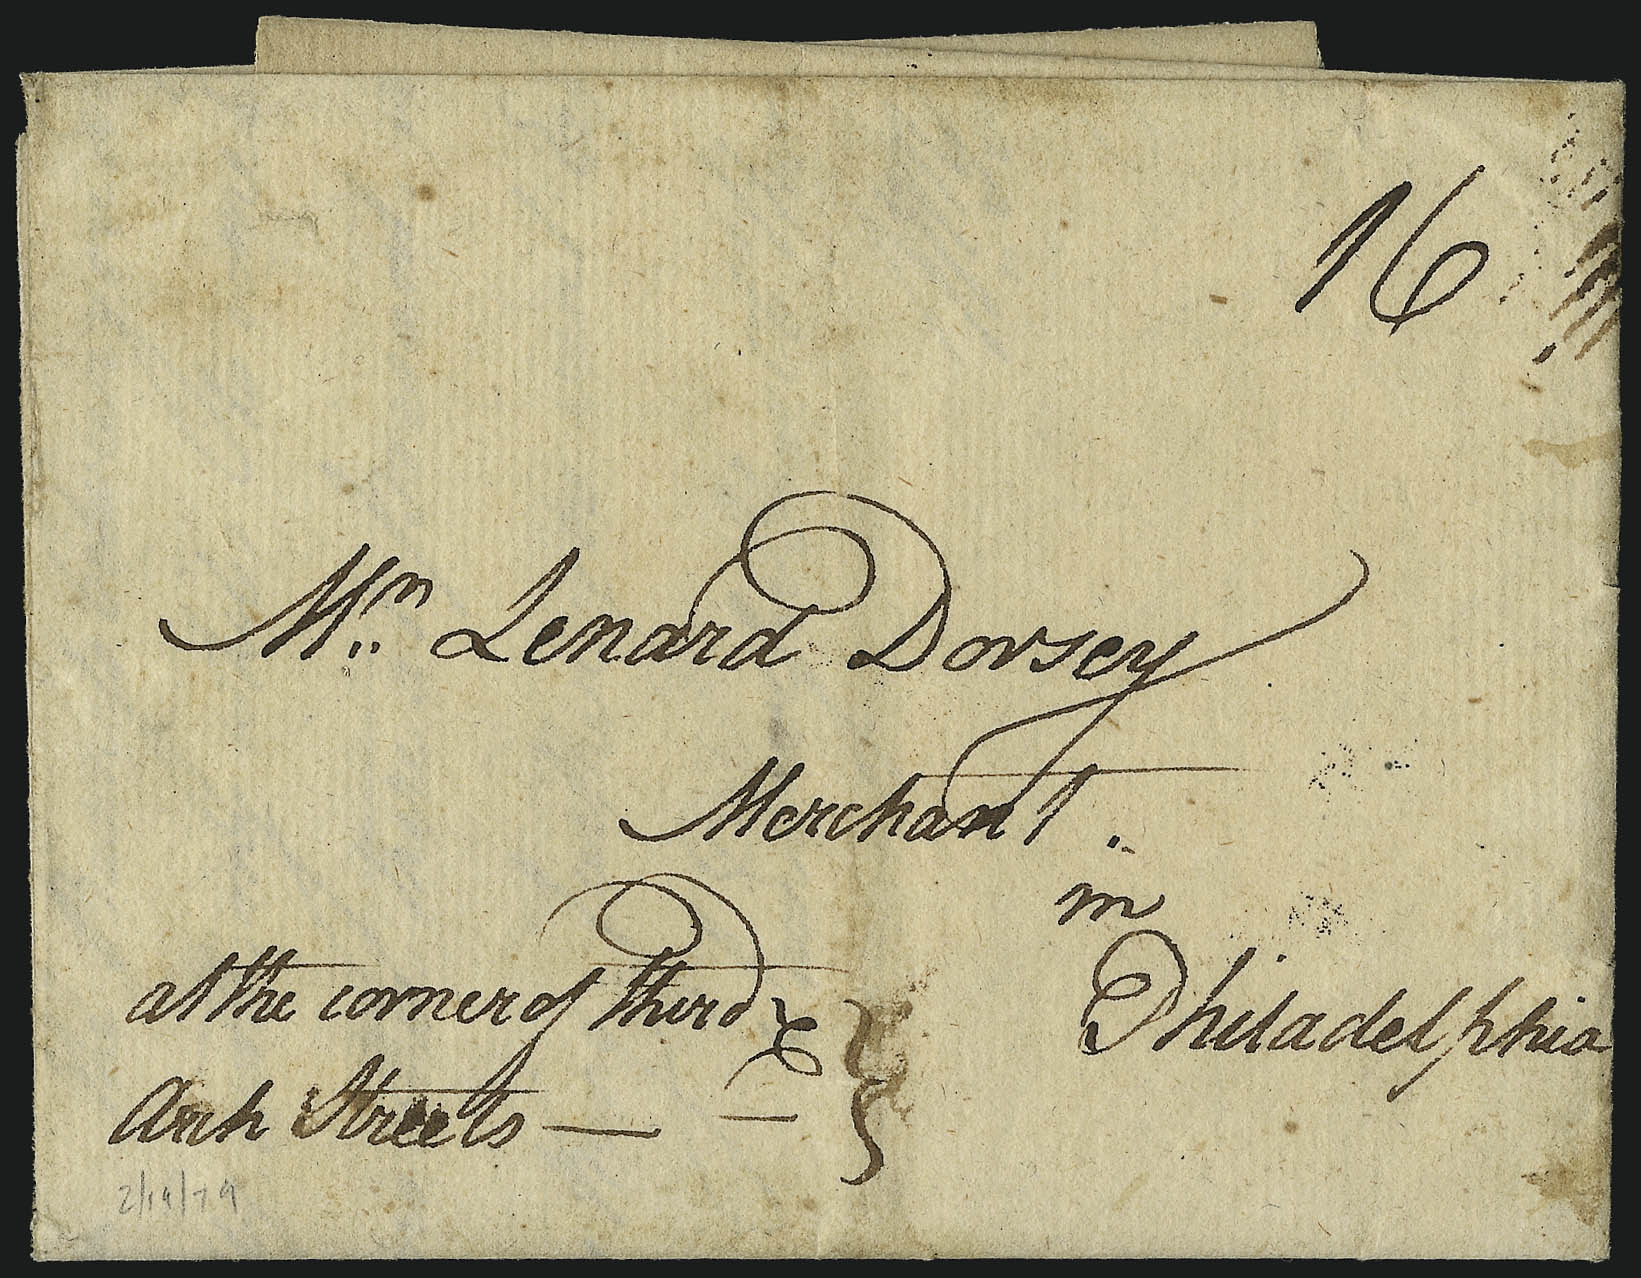 16
Mr. Lenard Dorsey
Merchant.
in
Philadelphia
at the corner of third &
Arch Streets
2/19/79